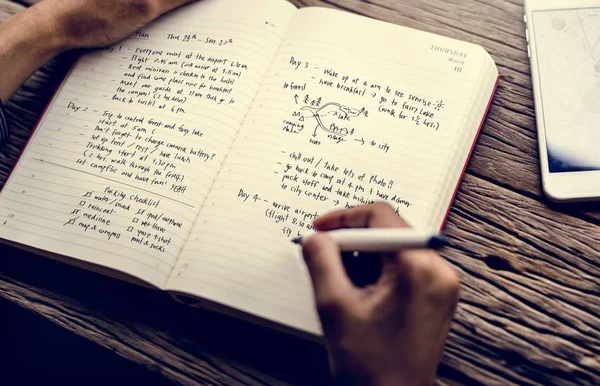 Plan Thu 24th - Sun 27th
Day 1 - Everyone meet at the airport 6.30am
- flight 7.45 am (will arrive at 9.15am)
and find some place nice for breakfast
- Meet our guide at 11am then go to
the canyon! (2 hrs drive)
- Back to hostel at 6pm
Day 2 - Trip to control forest and fairy lake
start at 5am
- Don't forget to charge camera battery!!
- Set up tent / rest / have lunch
- Trekking start at 1.30pm
(2 hrs. walk through the forest)
- Let campfire and have fun! YEAH
Packing Checklist
water / snack
raincoat
medicine
map & compass
ipod / earphone
wet tissue
spare t-shirt
pant & socks
THURSDAY
March
10
Day 3 - Wake up at 4 am to see sunrise
- have breakfast → go to fairy lake
(walk for 1½ hrs)
forest
lake
camping
river
village
→ to city
- chill out / take lots of Photo!!
- go back to camp at 4 pm & have dinner
- pack stuff and take minibus
to city center → hotel
Day 4 - arrive airport
(flight 8.30am
fly b